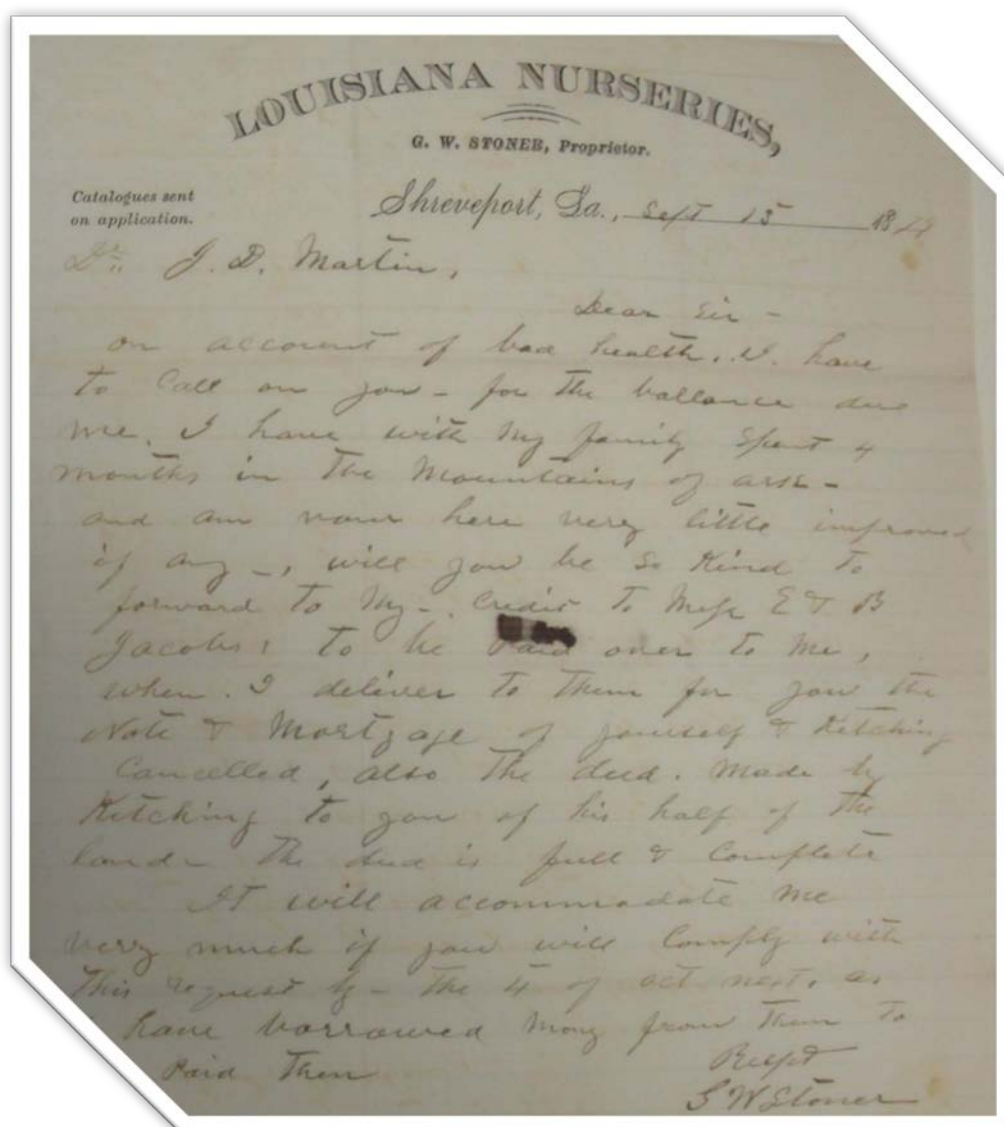 LOUISIANA NURSERIES,
G. W. STONER, Proprietor.
Catalogues sent
on application.
Shreveport, La., Sept 15 18
Dr. J. D. Martin,
Dear Sir -
on account of bad health, I. have
to Call on you - for the ballance due
me. I have with my family Spent 4
months in the Mountains of ark -
and am now here very little improved
if any -, will you be so Kind to
forward to my - Credit to Mess E & B
Jacobs, to be Paid over to me,
when. I deliver to them for you the
Note & Mortgage of yourself & Kitching
Cancelled, also the deed. Made by
Kitching to you of his half of the
land - The deed is full & Complete
It will accommodate me
very much if you will Comply with
this request by - the 4 of oct next. as
have borrowed mony from them to
Paid Them
Respt
G W Stoner